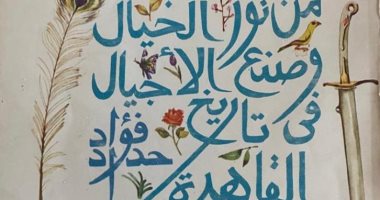 من نور الخيال
وصنع الأجيال
فى تاريخ
فؤاد
حداد
القاهرة